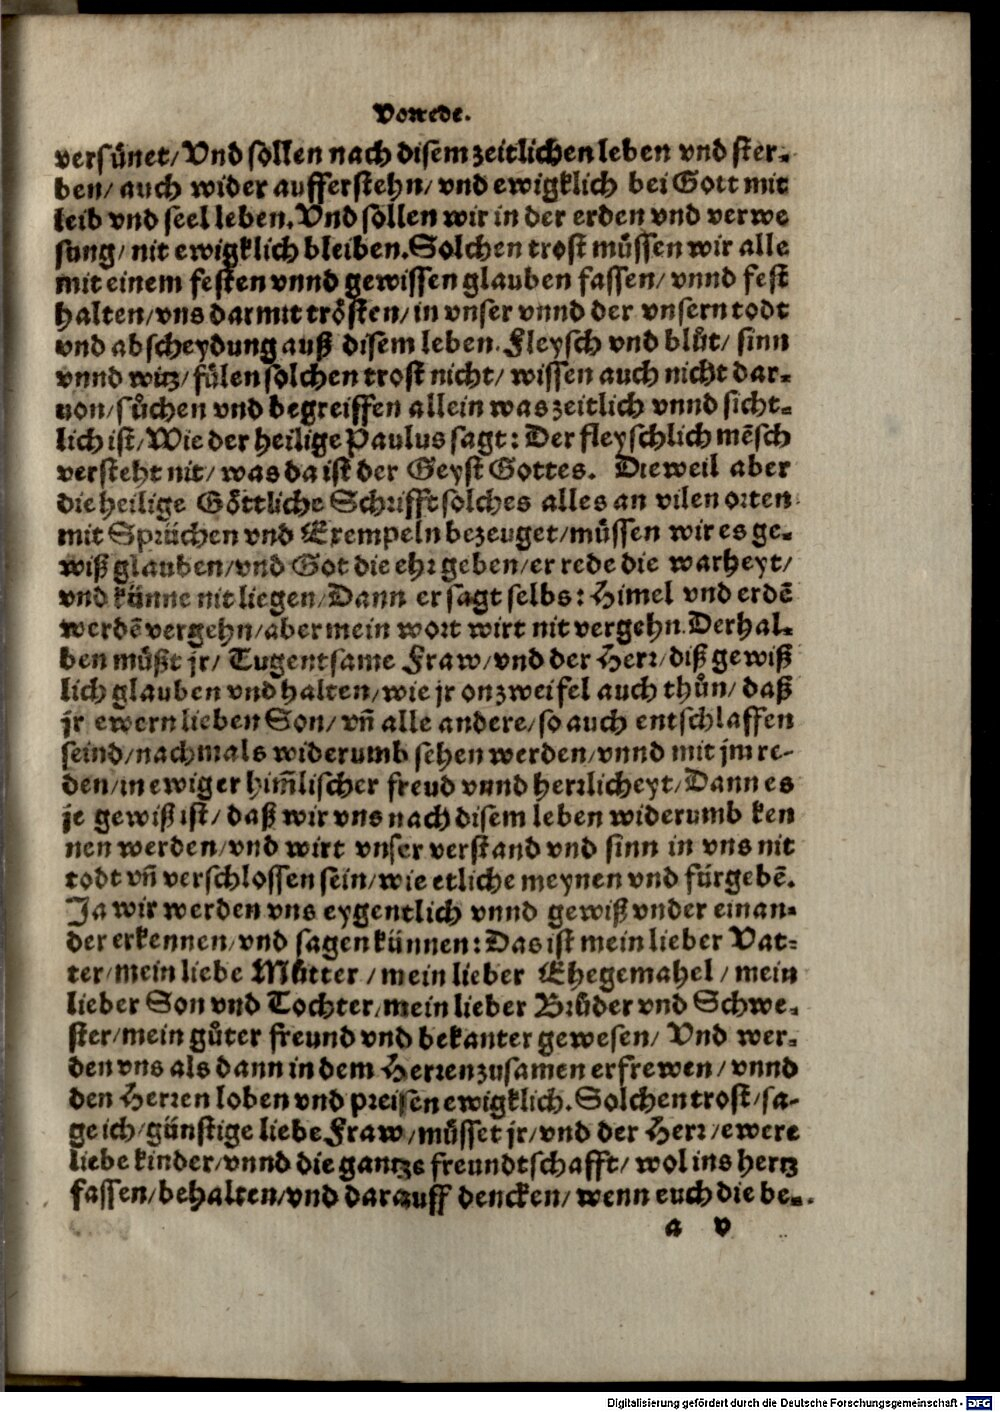 Vorrede.
versünet/ Vnd sollen nach disem zeitlichen leben vnd ster-
ben/ auch wider aufferstehn/ vnd ewigklich bei Gott mit
leib vnd seel leben. Vnd sollen wir in der erden vnd verwe
sung/ nit ewigklich bleiben. Solchen trost müssen wir alle
mit einem festen vnnd gewissen glauben fassen/ vnnd fest
halten/ vns darmit trösten/ in vnser vnnd der vnsern todt
vnd abscheydung auß disem leben. Fleysch vnd blůt/ sinn
vnnd witz/ fülen solchen trost nicht/ wissen auch nicht dar-
uon/ sůchen vnd begreiffen allein was zeitlich vnnd sicht-
lich ist/ Wie der heilige Paulus sagt: Der fleyschlich mēsch
versteht nit/ was da ist der Geyst Gottes. Dieweil aber
die heilige Göttliche Schrifft solches alles an vilen orten
mit Sprüchen vnd Exempeln bezeuget/ müssen wir es ge-
wiß glauben/ vnd Got die ehr geben/ er rede die warheyt/
vnd künne nit liegen/ Dann er sagt selbs: Himel vnd erdē
werdē vergehn/ aber mein wort wirt nit vergehn. Derhal-
ben müßt jr/ Tugentsame Fraw/ vnd der Herr/ diß gewiß
lich glauben vnd halten/ wie jr onzweifel auch thůn/ daß
jr ewern lieben Son/ vn̄ alle andere/ so auch entschlaffen
seind/ nachmals widerumb sehen werden/ vnnd mit jm re-
den/ in ewiger him̄lischer freud vnnd herrlicheyt/ Dann es
je gewiß ist/ daß wir vns nach disem leben widerumb ken
nen werden/ vnd wirt vnser verstand vnd sinn in vns nit
todt vn̄ verschlossen sein/ wie etliche meynen vnd fürgebē.
Ja wir werden vns eygentlich vnnd gewiß vnder einan-
der erkennen/ vnd sagen künnen: Das ist mein lieber Vat-
ter/ mein liebe Můtter/ mein lieber Ehegemahel/ mein
lieber Son vnd Tochter/ mein lieber Brůder vnd Schwe-
ster/ mein gůter freund vnd bekanter gewesen/ Vnd wer-
den vns als dann in dem Herren zusamen erfrewen/ vnnd
den Herren loben vnd preisen ewigklich. Solchen trost/ sa-
ge ich/ günstige liebe Fraw/ müsset jr/ vnd der Herr/ ewere
liebe kinder/ vnnd die gantze freundtschafft/ wol ins hertz
fassen/ behalten/ vnd darauff dencken/ wenn euch die be-
a v
Digitalisierung gefördert durch die Deutsche Forschungsgemeinschaft - DFG